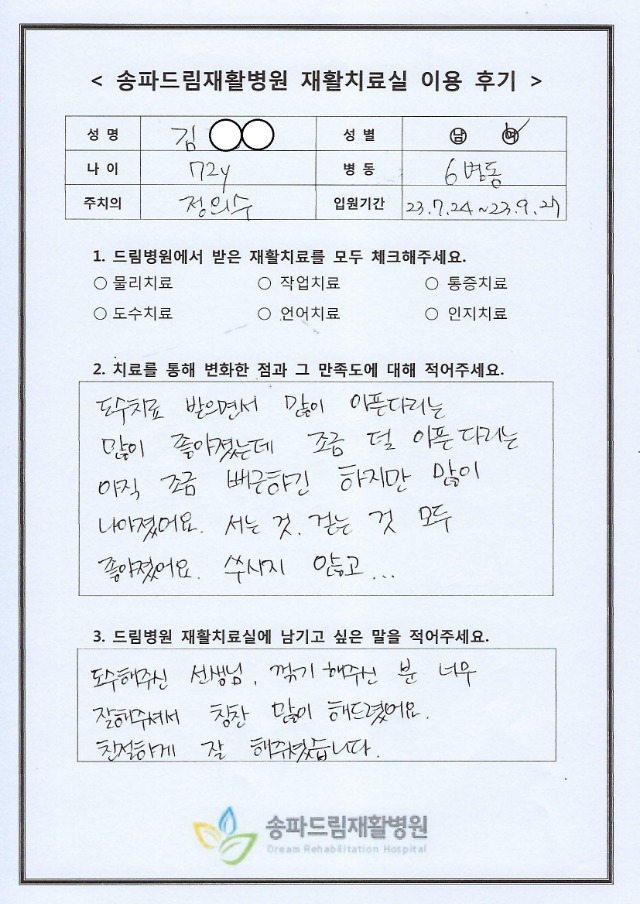 < 송파드림재활병원 재활치료실 이용 후기 >
성 명 김 성 별 남 여
나 이 72y 병 동 6병동
주치의 정의수 입원기간 23.7.24 ~ 23.9.27
1. 드림병원에서 받은 재활치료를 모두 체크해주세요.
○ 물리치료 ○ 작업치료 ○ 통증치료
○ 도수치료 ○ 언어치료 ○ 인지치료
2. 치료를 통해 변화한 점과 그 만족도에 대해 적어주세요.
도수치료 받으면서 많이 아픈다리는
많이 좋아졌는데 조금 덜 아픈 다리는
아직 조금 뻐근하긴 하지만 많이
나아졌어요. 서는 것. 걷는 것 모두
좋아졌어요. 쑤시지 않고...
3. 드림병원 재활치료실에 남기고 싶은 말을 적어주세요.
도수해주신 선생님, 꺾기 해주신 분 너무
잘해주셔서 칭찬 많이 해드렸어요.
친절하게 잘 해주셨습니다.
송파드림재활병원
Dream Rehabilitation Hospital